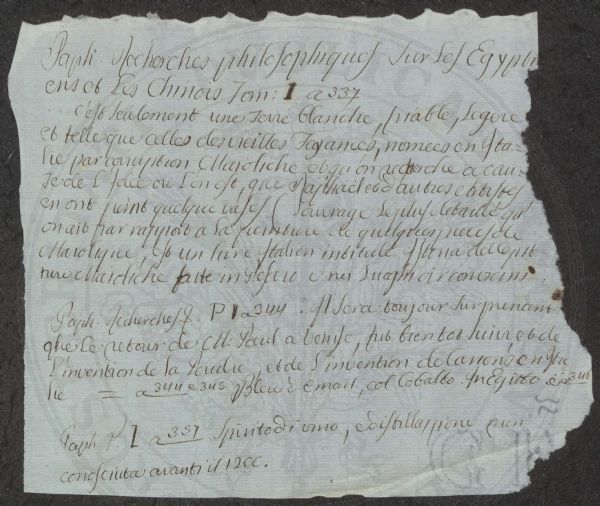 Paph: Recherches philosophiques sur les Egypti
ens et Les Chinois Tom: I a 337
c'est seulement une Terre blanche, friable, Legere
et telle que celles des vieilles Fayances, nomées en Ita-
lie par corruption Maioliche et qu'on recherche a cau-
se de L'Idée ou L'on est, que Raphael et d'autres
en ont peint quelque vases (L'ouvrage Le plus
on ait par rapport a La peinture de quelques pieces de
Maiolique, est un Livre Italien intitulé Istoria delle pit-
ture Maioliche fatte in
Paph. Recherches P I a 344. Il sera toujour surprenant
que Le retour de M. Paul a Venise, fut bientot suivi et de
L'invention de la Poudre, et de L'invention de canons en Ita
lie = a 344 e 345 Bleu e email, col Cobalto. In Egitto a 346
Paph P. I a 357 Spirito di vino, e distillazione non
conosciuta avanti il 1200.